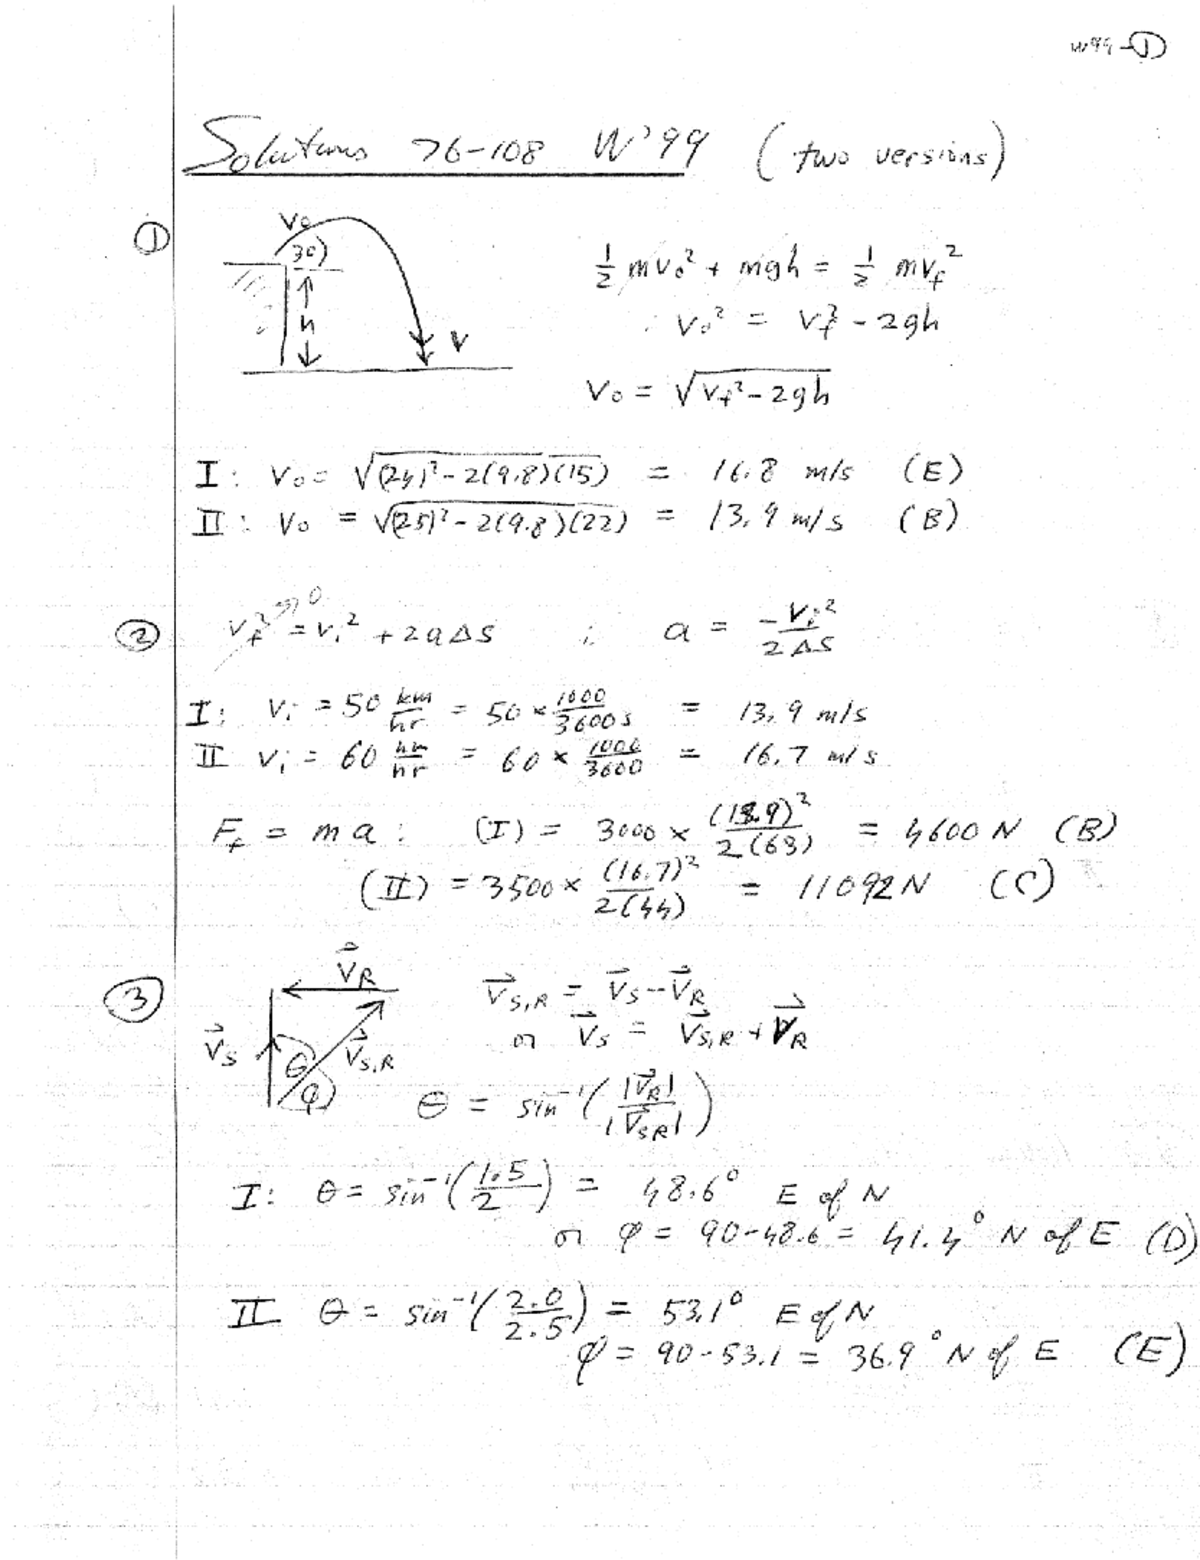 W99-①
Solutions 76-108 W'99 (two versions)
①
V₀
30)
h
V
½ mv₀² + mgh = ½ mv_f²
∴ V₀² = V_f² - 2gh
V₀ = √(V_f² - 2gh)
I: V₀ = √((24)² - 2(9.8)(15)) = 16.8 m/s (E)
II: V₀ = √((25)² - 2(9.8)(22)) = 13.9 m/s (B)
② V_f² → 0 = V_i² + 2aΔS ∴ a = -V_i²/2ΔS
I: V_i = 50 km/hr = 50 × 1000/3600s = 13.9 m/s
II V_i = 60 km/hr = 60 × 1000/3600 = 16.7 m/s
F_f = ma: (I) = 3000 × (13.9)²/2(63) = 4600 N (B)
(II) = 3500 × (16.7)²/2(44) = 11092 N (C)
③
V⃗_R
V⃗_S
V⃗_S,R
θ
φ
V⃗_S,R = V⃗_S - V⃗_R
or V⃗_S = V⃗_S,R + V⃗_R
θ = sin⁻¹(|V⃗_R|/|V⃗_SR|)
I: θ = sin⁻¹(1.5/2) = 48.6° E of N
or φ = 90-48.6 = 41.4° N of E (D)
II θ = sin⁻¹(2.0/2.5) = 53.1° E of N
φ = 90-53.1 = 36.9° N of E (E)